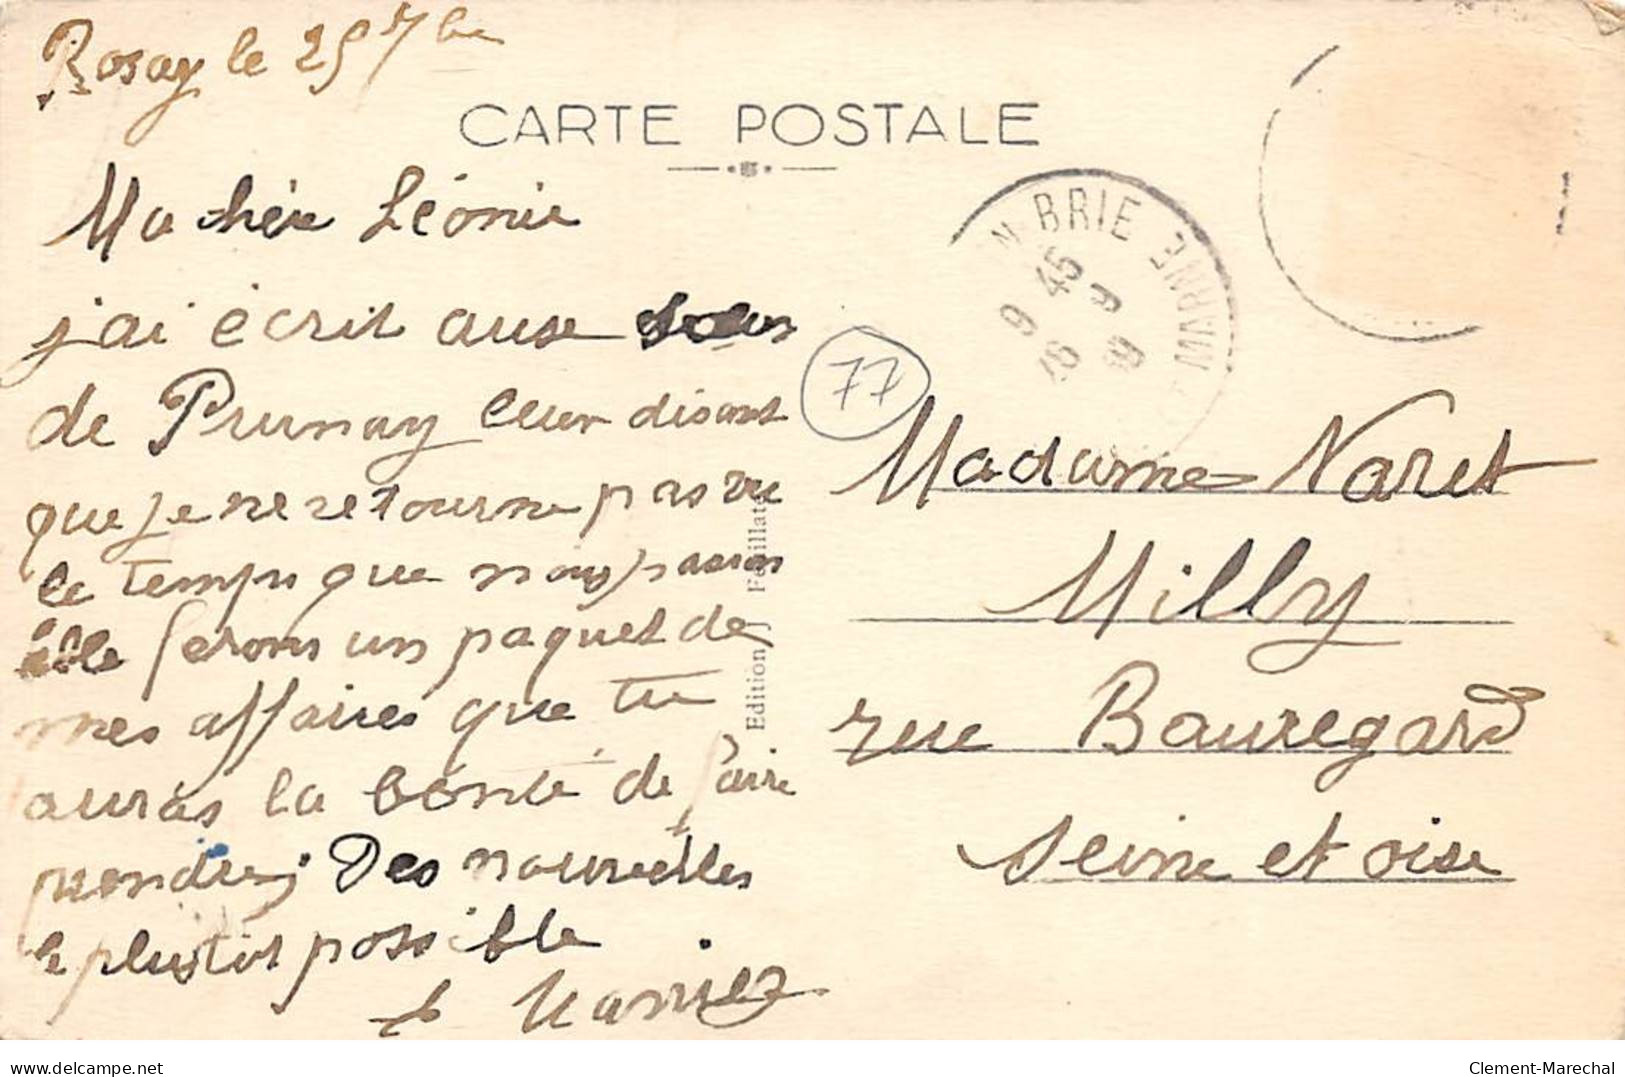 Rosay le 25 7bre
CARTE POSTALE
Ma chère Léonie
j'ai écrit ause
de Prunay leur disant
que je ne retourne pas vu
le temps que nous
elle ferons un paquet de
mes affaires que tu
auras la bonté de faire
prendre; Des nouvelles
le plustot possible
N BRIE
MARNE
9 45
26 9
77
Edition J Feuillate
Madame Naret
Milly
rue Bauregard
Seine et oise
www.delcampe.net
Clement-Marechal